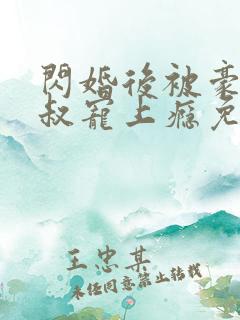 閃婚後被豪
叔寵上癮免
王忠某
未经同意禁止转载